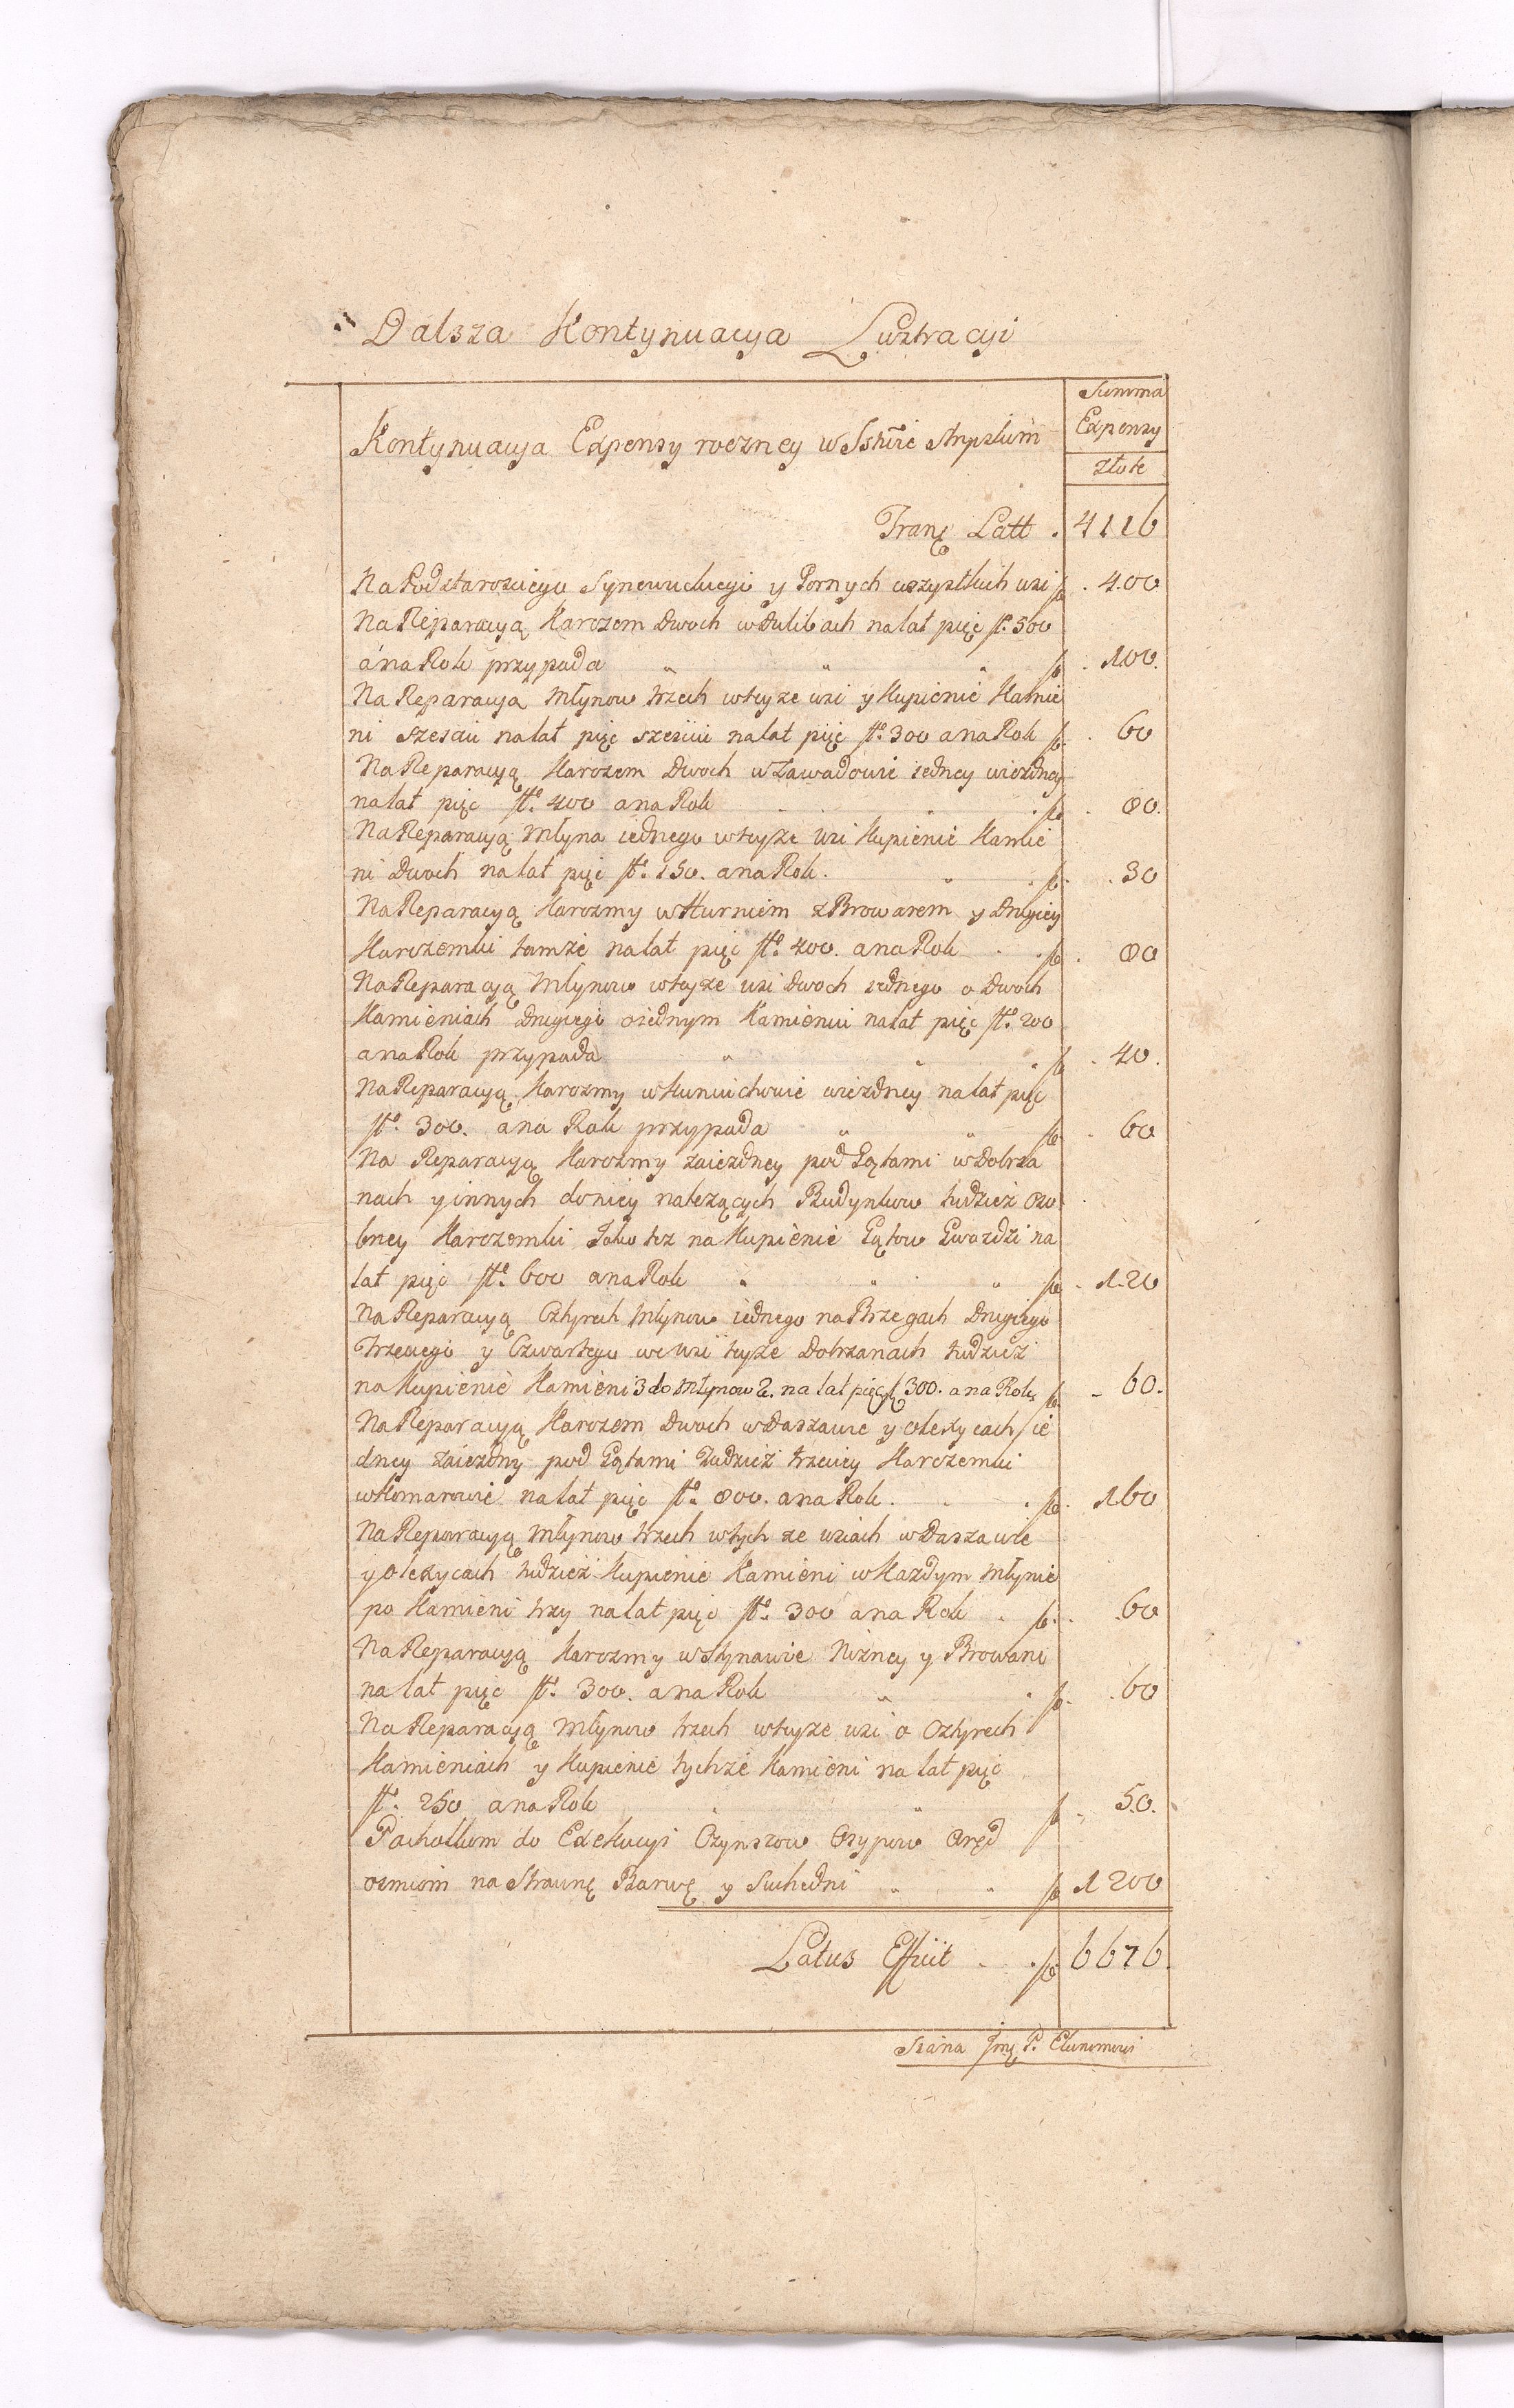 Dalsza Kontynuacya Lustracyi
Summa
Expensy
Złote
Kontynuacya Expensy roczney w Sstwie Stryskim
Trans Latt . 4116
Na Podstarosciego Synowuckiego y Gornych wszystkich wsi fl . 400
Na Reparacyą Karczem Dwoch w Dulibach na lat pięć fl. 500
a na Rok przypada " " " fl . 100.
Na Reparacyą Młynow trzech w teyze wsi y Kupienie Kamie
ni szesciu na lat pięć szesciu na lat pięć fl. 300 a na Rok fl. . 60
Na Reparacyą Karczem Dwoch w Zawadowie iedney wiezdney
na lat pięć fl. 400 a na Rok . fl. . 80.
Na Reparacyą Młyna iednego w teyze wsi Kupienie Kamie
ni Dwoch na lat pięć fl. 150. a na Rok. " . fl. . 30
Na Reparacyą Karczmy w Hurniem z Browarem y Drugiey
Karczemki tamże na lat pięć fl. 400. a na Rok . . fl . 80
Na Reparacyą Młynow w teyze wsi Dwoch iednego o Dwoch
Kamieniach Drugiego o iednym Kamieniu na lat pięć fl. 200
a na Rok przypada " " " fl . 40.
Na Reparacyą Karczmy w wiezdney na lat pięć
fl. 300. a na Rok przypada " " fl. . 60
Na Reparacyą Karczmy zaiezdney pod Gątami w Dobrza
nach y innych do niey nalezących Budynkow tudziez oso
bney Karczemki Jako tez na Kupienie Gątow Gwozdzi na
lat pięć fl. 600 a na Rok " " " fl . 120
Na Reparacyą Cztyrech Młynow iednego na Brzegach Drugiego
Trzeciego y Czwartego we wsi teyze Dobrzanach tudziez
na Kupienie Kamieni 3 do Młynow 2. na lat pięć fl 300. a na Rok fl. . 60.
Na Reparacyą Karczem Dwoch w Daszawie y Oleksycach ie
dney zaiezdny pod Gątami Tudziez trzeciey Karczemki
w Komarowie na lat pięć fl. 800. a na Rok. . . fl. 160
Na Reparacyą Młynow trzech w tych ze wsiach w Daszawie
y Oleksycach tudziez Kupienie Kamieni w Kazdym Młynie
po Kamieni trzy na lat pięć fl. 300 a na Rok . fl. . 60
Na Reparacyą Karczmy w Stynawie Nizney y Browaru
na lat pięć fl. 300. a na Rok " . fl. . 60
Na Reparacyą Młynow trzech w teyze wsi o Cztyrech
Kamieniach y Kupienie tychże Kamieni na lat pięć
fl. 250 a na Rok " " fl . 50.
Pachołkom do Exekucyi Czynszow Osypow Aręd
osmiom na Strawnę Barwę y Suchedni " " fl 1200
Latus Efficit . . fl. 6676.
Siana Jmę P. Ekonomowi